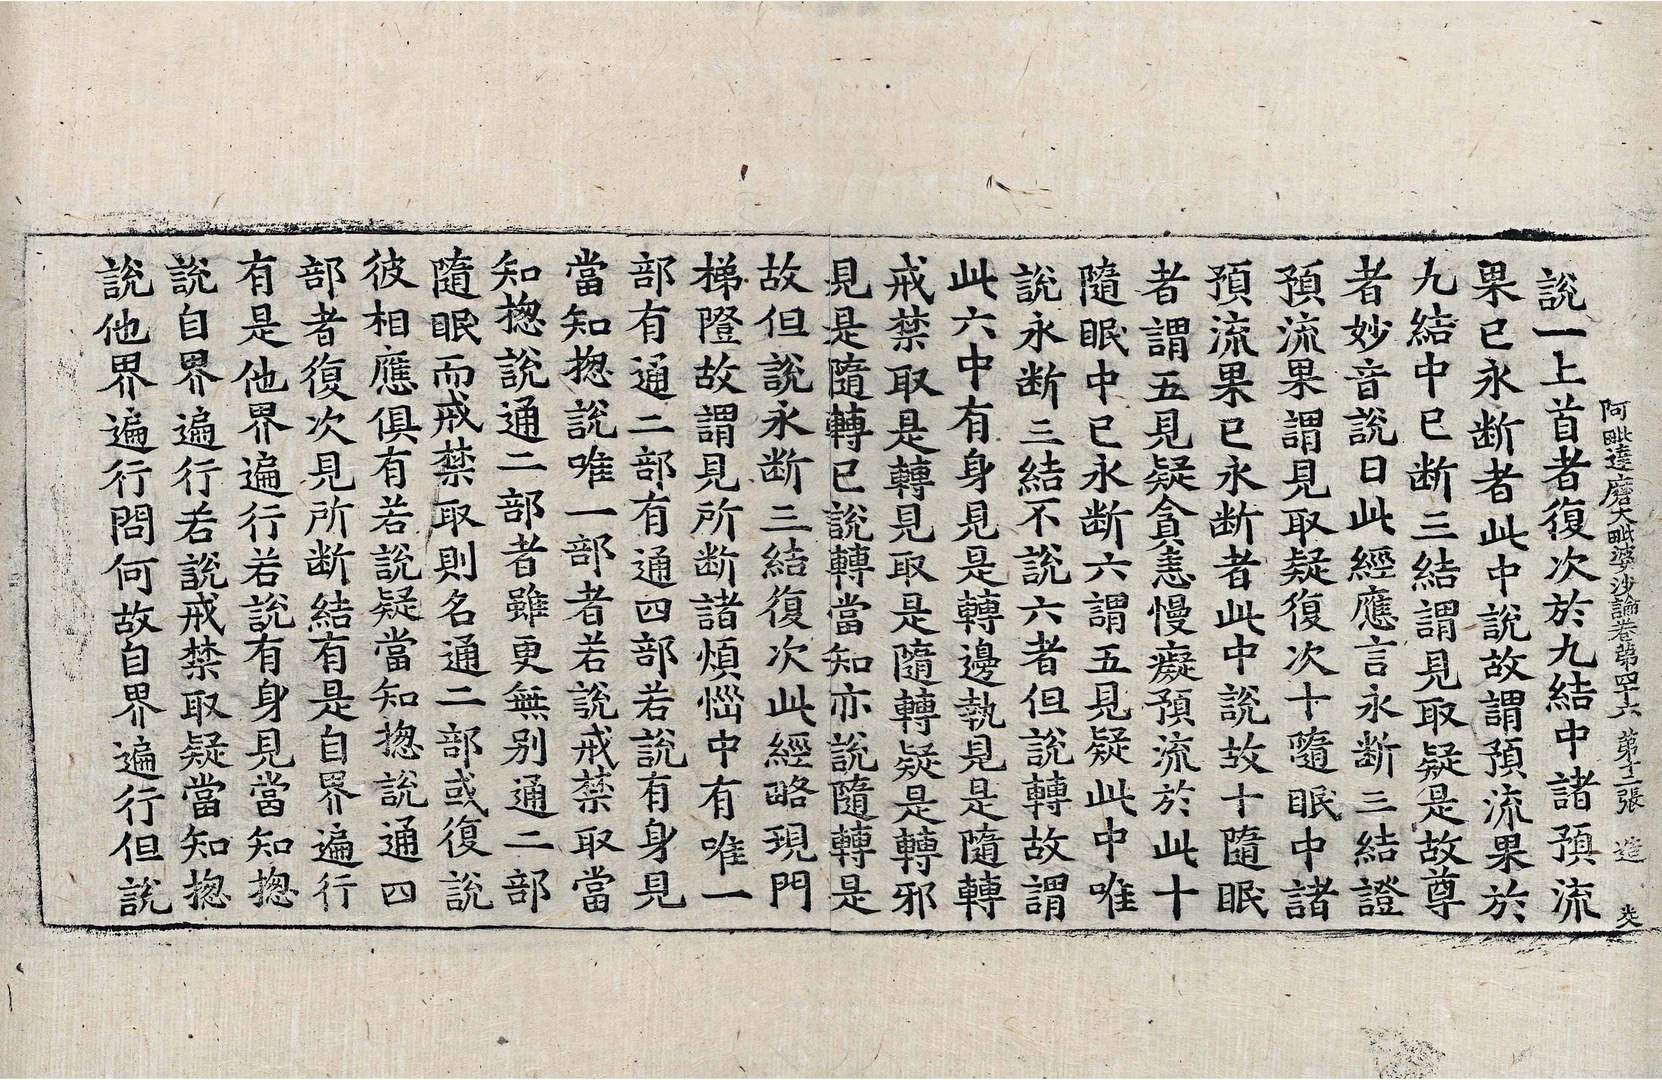 阿毗達磨大毗婆沙論卷第四十六 第十二張 造
說一上首者復次於九結中諸預流
果已永断者此中說故謂預流果於
九結中已断三結謂見取疑是故尊
者妙音說曰此經應言永断三結證
預流果謂見取疑復次十隨眠中諸
預流果已永断者此中說故十隨眠
者謂五見疑貪恚慢癡預流於此十
隨眠中已永断六謂五見疑此中唯
說永断三結不說六者但說轉故謂
此六中有身見是轉邊執見是隨轉
戒禁取是轉見取是隨轉疑是轉邪
見是隨轉已說轉當知亦說隨轉是
故但說永断三結復次此經略現門
梯隥故謂見所断諸煩惱中有唯一
部有通二部有通四部若說有身見
當知揔說唯一部者若說戒禁取當
知揔說通二部者雖更無別通二部
隨眠而戒禁取則名通二部或復說
彼相應俱有若說疑當知揔說通四
部者復次見所断結有是自界遍行
有是他界遍行若說有身見當知揔
說自界遍行若說戒禁取疑當知揔
說他界遍行問何故自界遍行但說